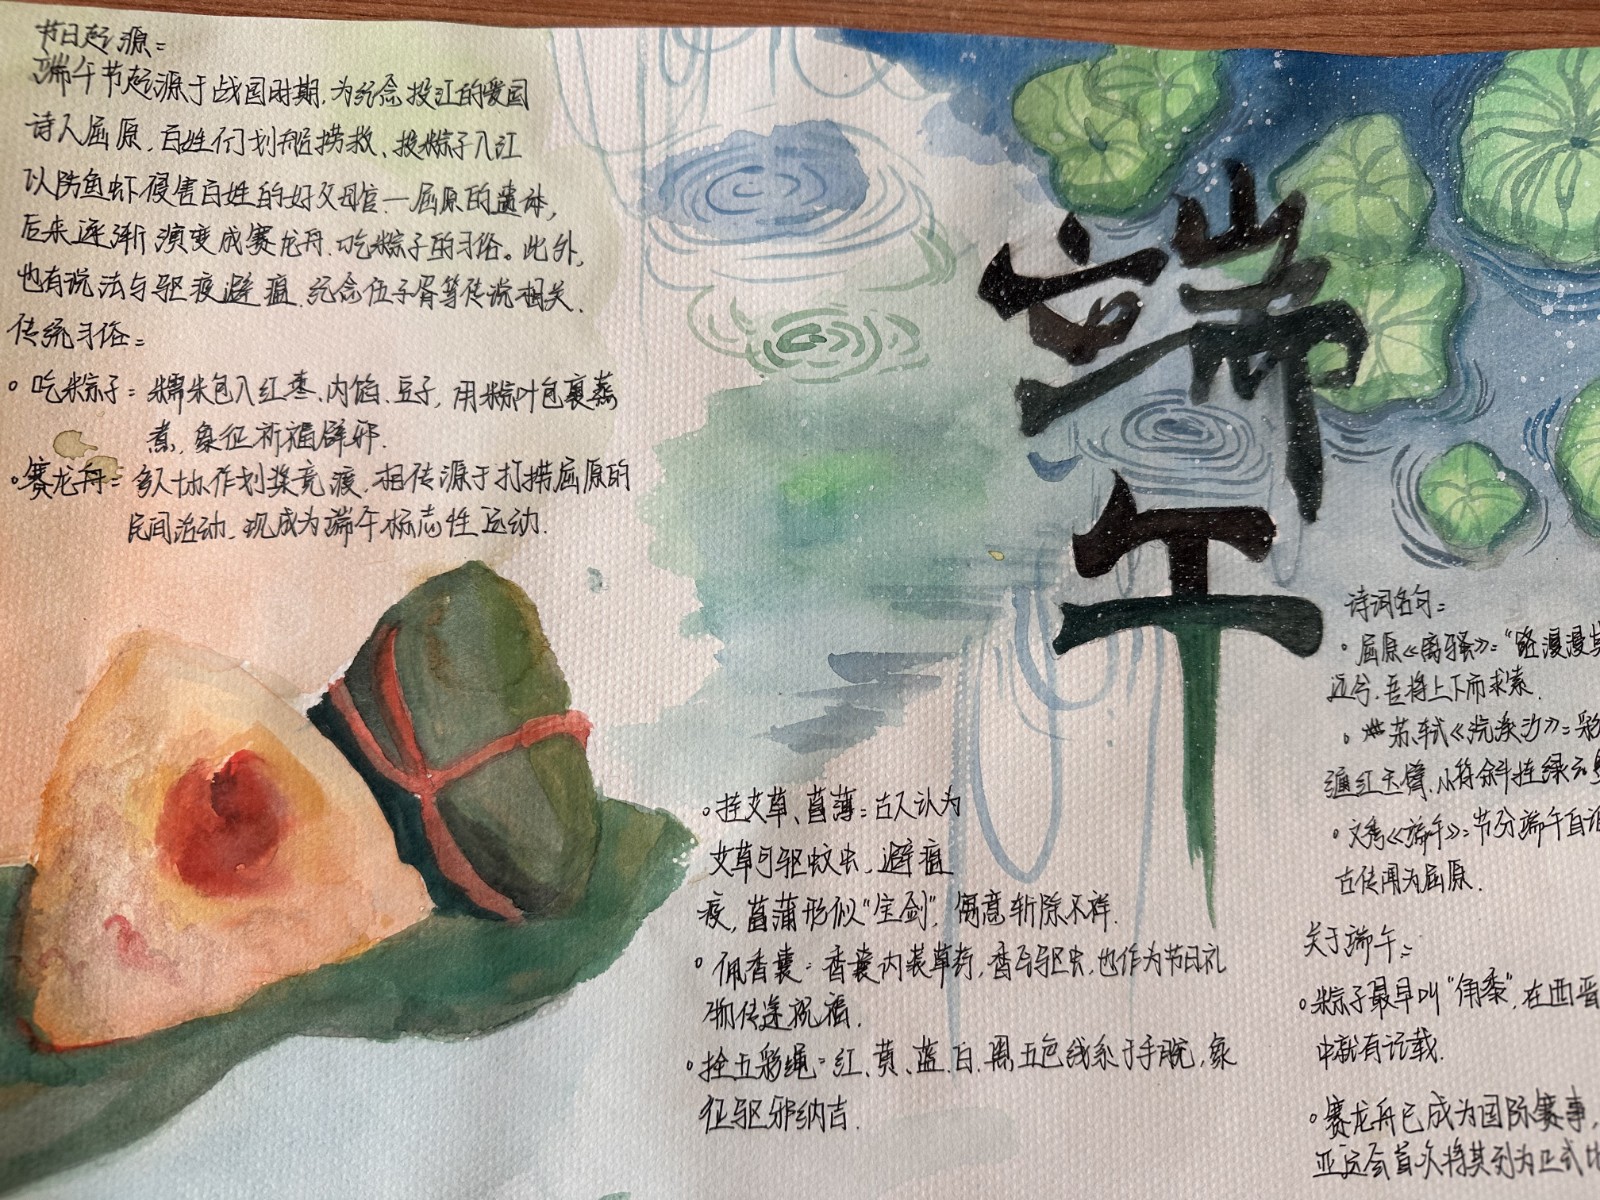 节日起源:
端午节起源于战国时期,为纪念投江的爱国
诗人屈原,百姓们划船捞救、投粽子入江
以防鱼虾侵害百姓的好父母官一屈原的遗体,
后来逐渐演变成赛龙舟、吃粽子的习俗。此外,
也有说法与驱疫避瘟、纪念伍子胥等传说相关、
传统习俗:
◦ 吃粽子: 糯米包入红枣、内馅、豆子,用粽叶包裹蒸
煮,象征祈福辟邪.
◦ 赛龙舟: 多人协作划桨竞渡,相传源于打捞屈原的
民间活动、现成为端午标志性运动.
端
午
◦ 挂艾草、菖蒲:古人认为
艾草可驱蚊虫、避瘟
疫,菖蒲形似“宝剑”,寓意斩除不祥.
◦ 佩香囊: 香囊内装草药,香与驱虫,也作为节日礼
物传递祝福.
◦ 拴五彩绳: 红、黄、蓝、白、黑五色线系于手腕,象
征驱邪纳吉.
诗词名句:
◦ 屈原《离骚》:“路漫漫其
远兮,吾将上下而求索.
◦ 苏轼《浣溪沙》:彩
缠红玉臂,小符斜挂绿云
◦ 文秀《端午》:节分端午自
古传闻为屈原.
关于端午:
◦ 粽子最早叫“角黍”,在西晋
中就有记载.
◦ 赛龙舟已成为国际赛事,
亚运会首次将其列为正式比